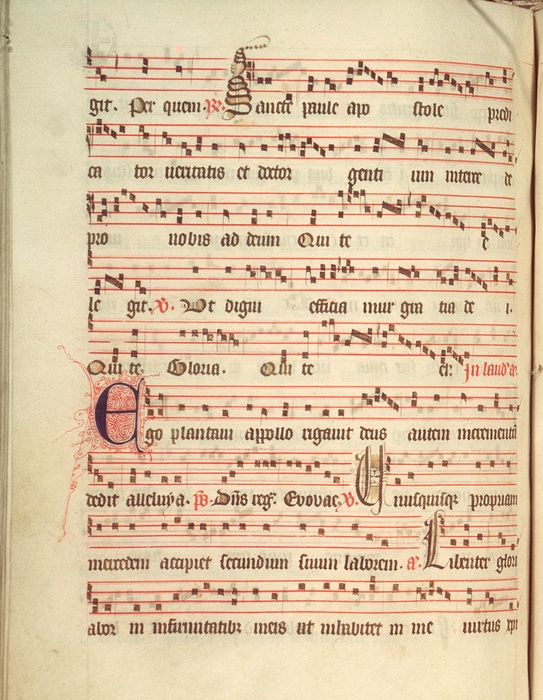 git. Per quem. R. Sancte paule apo stole predi
ca tor ueritatis et doctor genti um interce de
pro nobis ad deum Qui te e
le git. V. Ut digni efficia mur gra tia de i.
Qui te Gloria. Qui te el: In laud'. a.
Ego plantaui appollo rigauit deus autem incrementū
dedit alleluya. ps. Dn̄s reg. Evovae. V. Unusquisqꝫ propriam
mercedem accipiet secundum suum laborem. a. Libenter glori
abor in infirmitatibꝫ meis ut inhabitet in me uirtus xpi